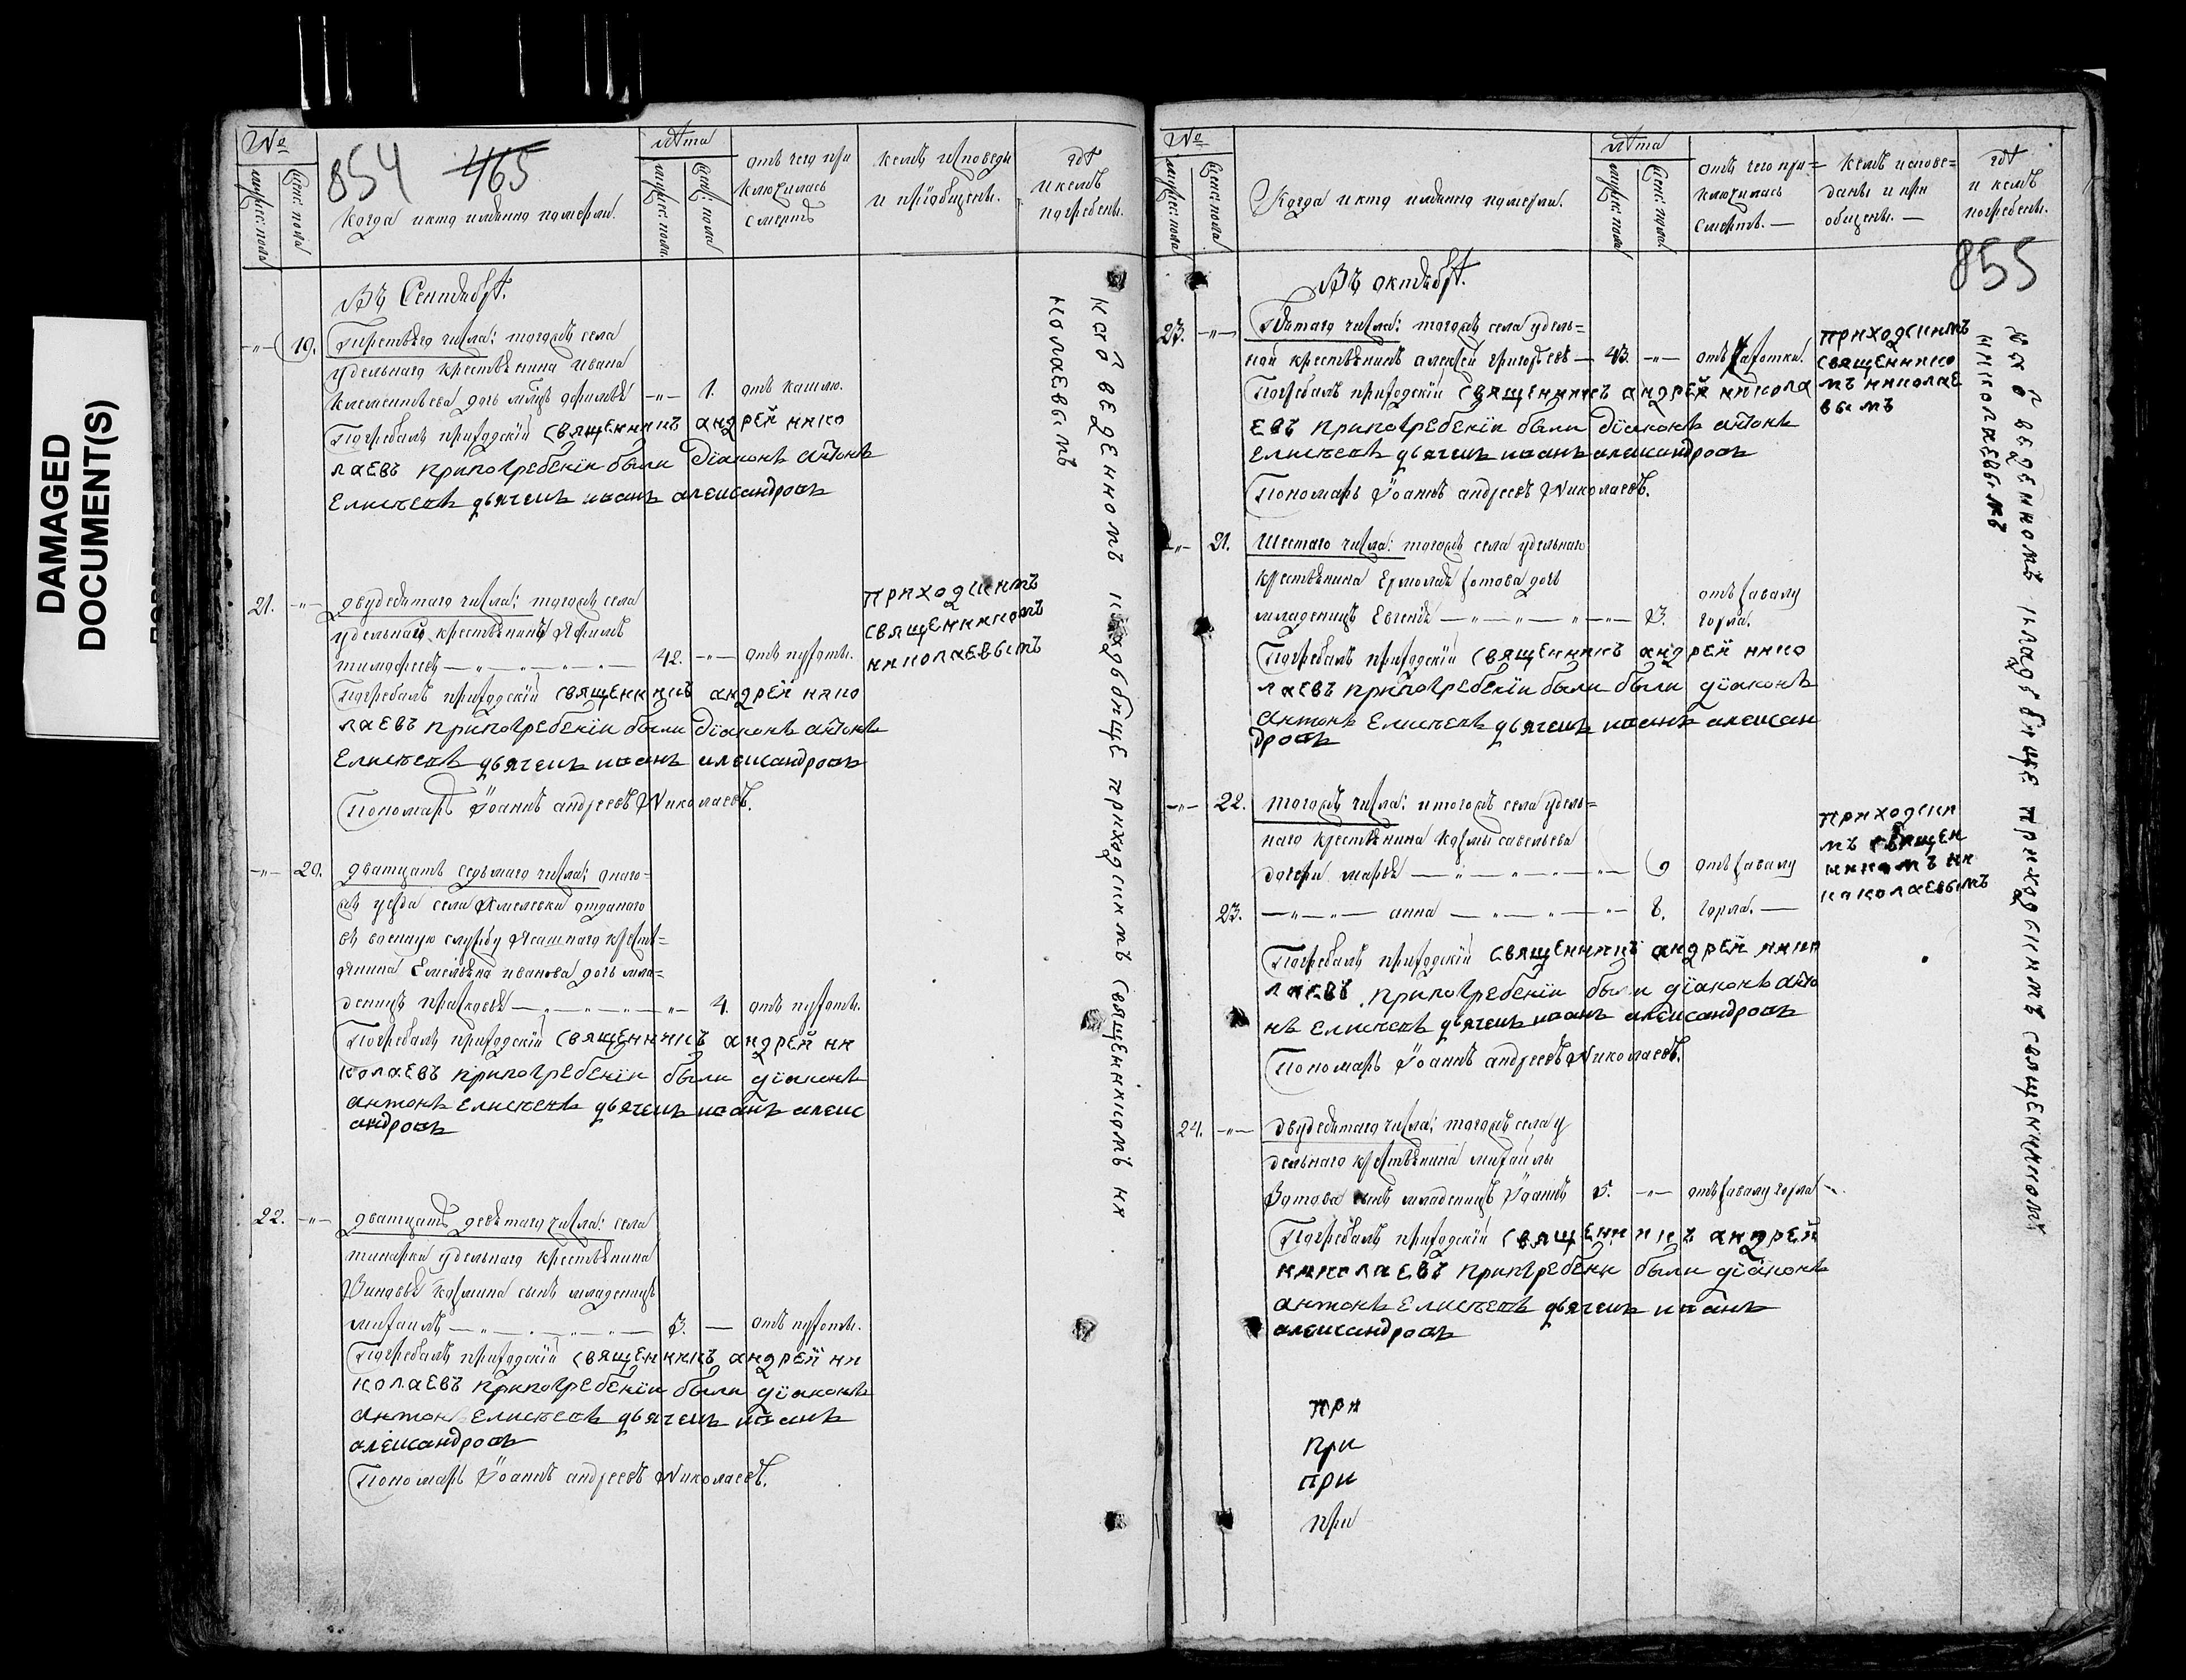 DAMAGED
DOCUMENT(S)
854 465
№
мужес: пола
женс: пола
Когда и кто имянно померли.
лѣта
мужес: пола
женс: пола
отъ чего при
ключилась
смерть
кемъ исповеды
и пріобщены.
гдѣ
и кемъ
погребены.
Въ Сентябрѣ.
19. Третьяго числа: тогожъ села
удельнаго крестьянина Ивана
Климентьева дочь
1. отъ кашлю.
Погребалъ приходскій священникъ андрей нико
лаевъ припогребеніи были діаконъ антонъ
Елисѣевъ дьячецъ иванъ александровъ
21. двудесятаго числа: тогожъ села
удельнаго крестьянинъ Ефимъ
тимофеевъ 42. отъ чухоты.
приходскимъ
священникомъ
николаевымъ
Погребалъ приходскій священникъ андрей нико
лаевъ припогребеніи были діаконъ антонъ
Елисѣевъ дьячецъ иванъ александровъ
Пономарь Іоаннъ андреевъ Николаевъ.
20. дватцать седьмаго числа: онаго
жъ уезда села отданаго
въ военную службу Ясашнаго крестья
янина Емельяна иванова дочь мла=
денецъ 4. отъ чухоты.
Погребалъ приходскій священникъ андрей ни
колаевъ припогребеніи были діаконъ
антонъ Елисѣевъ дьячецъ иванъ алекс
андровъ
22. дватцать девятаго числа: села
удельнаго крестьянина
козмина сынъ младенецъ
михаилъ 3. отъ чухоты.
Погребалъ приходскій священникъ андрей ни
колаевъ припогребеніи были діаконъ
антонъ Елисѣевъ дьячецъ иванъ
александровъ
Пономарь Іоаннъ андреевъ Николаевъ.
на отведенномъ кладбище приходскимъ священникомъ ни
колаевымъ
855
№
мужес: пола
женс: пола
Когда и кто имянно померли.
лѣта
мужес: пола
женс: пола
отъ чего при=
ключилась
смерть.
Кемъ испове=
даны и при
общены.
гдѣ
и кемъ
погребены.
Въ октябрѣ.
23. Пятаго числа: тогожъ села удель=
ной крестьянинъ алексей григорьевъ 43. отъ чахотки.
приходскимъ
священнико
мъ николае
вымъ
Погребалъ приходскій священникъ андрей никола
евъ припогребеніи были діаконъ антонъ
Елисѣевъ дьячецъ иванъ александровъ
Пономарь Іоаннъ андреевъ Николаевъ.
21. Шестаго числа: тогожъ села удельнаго
крестьянина Ермолая дочь
младенецъ Евгенія 3. отъ завалу
горла.
Погребалъ приходскій священникъ андрей нико
лаевъ припогребеніи были были діаконъ
Антонъ Елисѣевъ дьячецъ иванъ алексан
дровъ
22. тогожъ числа: и тогожъ села удель=
наго крестьянина Козмы савельева
дочери марья 9 отъ завалу
23. анна 8. горла.
приходски
мъ священ
никомъ ни
николаевымъ
Погребалъ приходскій священникъ андрей нико
лаевъ припогребеніи были діаконъ анто
нъ Елисѣевъ дьячецъ иванъ александровъ
Пономарь Іоаннъ андреевъ Николаевъ.
24. двудесятаго числа: тогожъ села у
дельнаго крестьянина михаилы
Зотова сынъ младенецъ Іоаннъ 5. отъ завалу горла
Погребалъ приходскій священникъ андрей
николаевъ припгребени были діаконъ
антонъ Елисѣевъ дьячецъ иванъ
александровъ
при
при
при
при
на отведенномъ кладбище приходскимъ священникомъ
николаевымъ